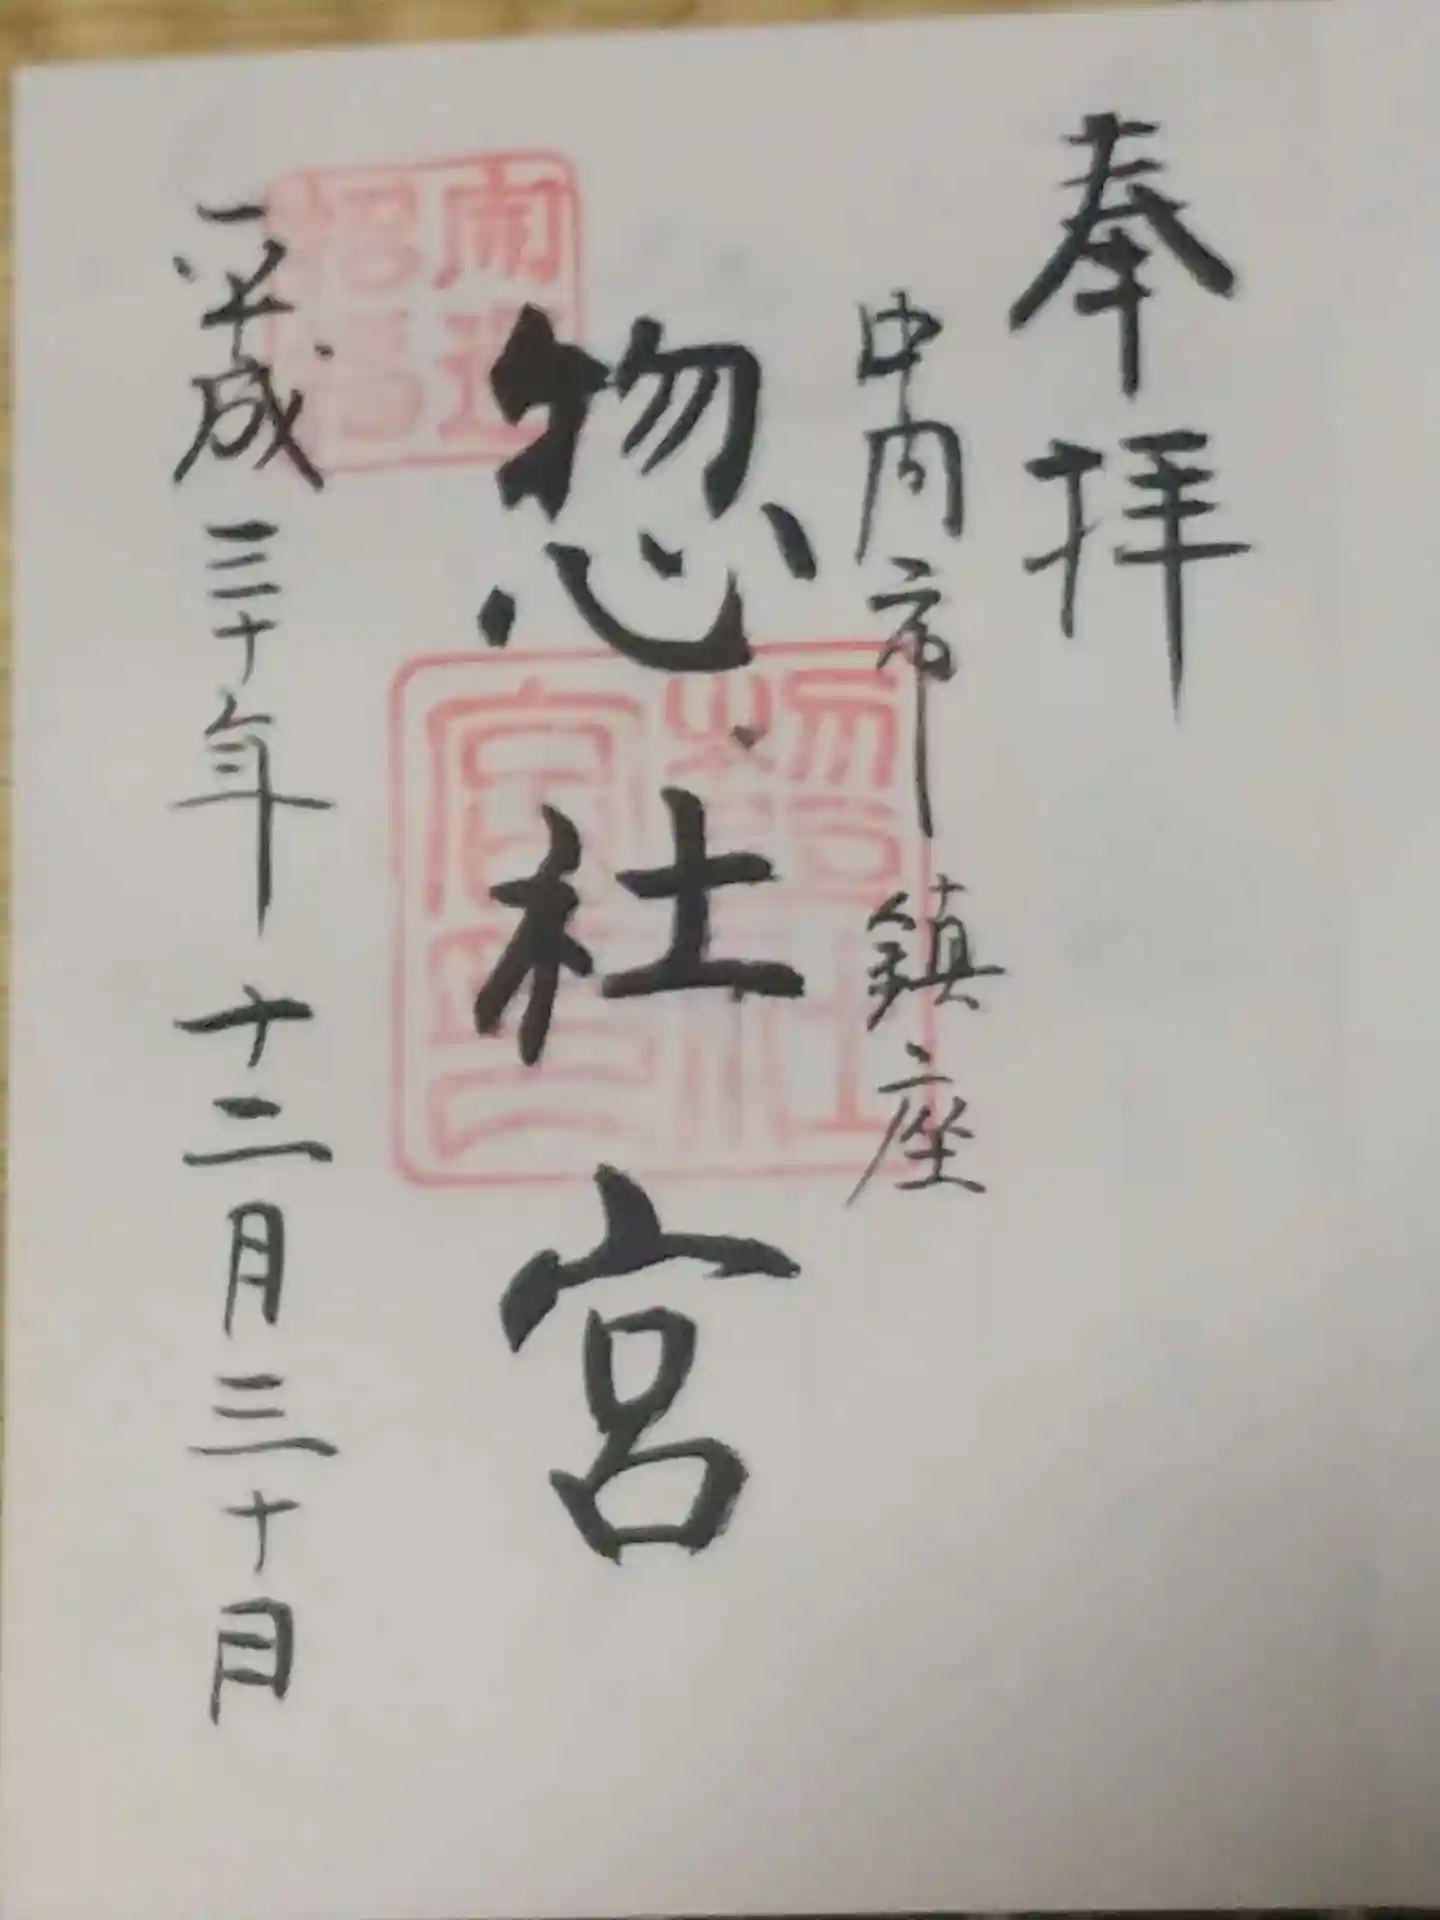 奉拝
中内市 鎮座
惣社宮
平成三十年 十二月三十日
開運
招福
惣社
宮印